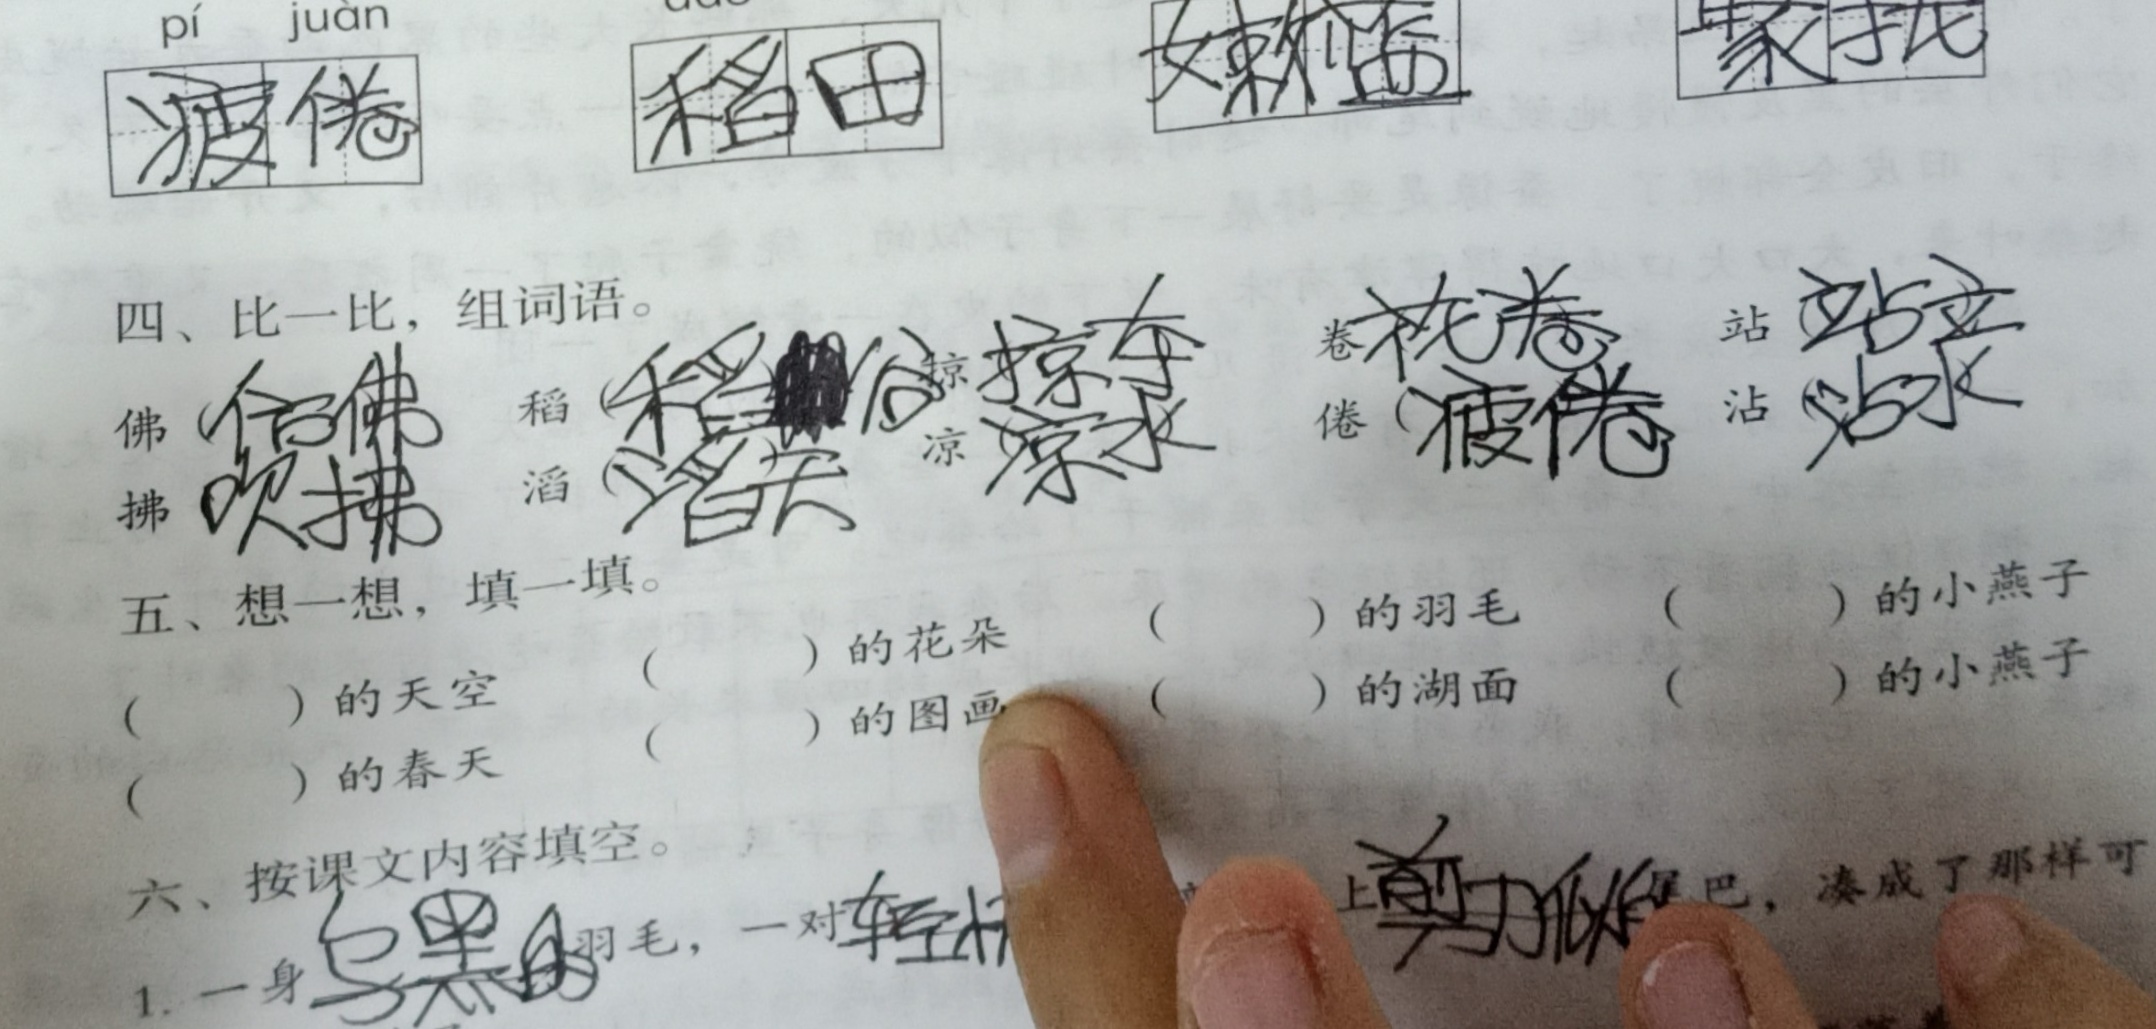 pí juàn
疲倦 稻田
四、比一比，组词语。
佛（仿佛 稻（稻谷 掠 掠夺 卷 花卷 站（站立
拂 吹拂 滔（滔天 凉（凉水 倦（疲倦 沾（沾水
五、想一想，填一填。
（ ）的天空 （ ）的花朵 （ ）的羽毛 （ ）的小燕子
（ ）的春天 （ ）的图画 （ ）的湖面 （ ）的小燕子
六、按课文内容填空。
1. 一身乌黑的羽毛，一对轻快 上剪刀似的尾巴，凑成了那样可